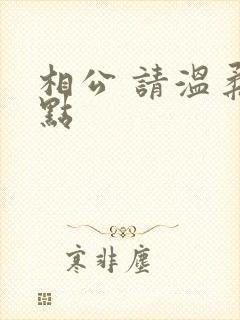 相公 請溫柔
點
寒非塵